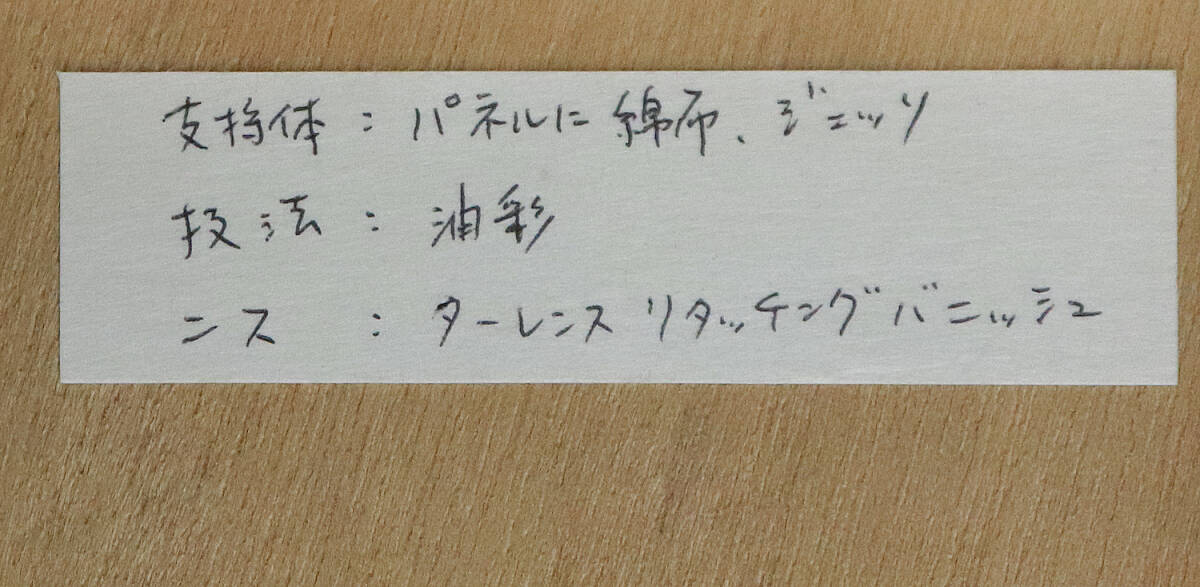 支持体：パネルに綿布、ジェッソ
技法：油彩
ニス：ターレンス リタッチングバニッシュ